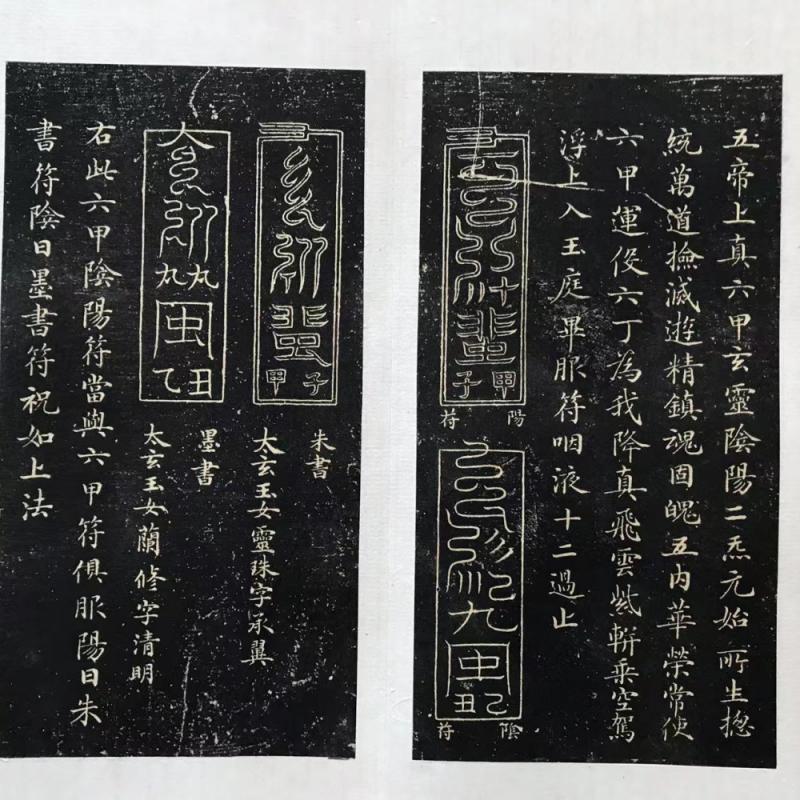 五帝上真六甲玄靈陰陽二炁元始所生摠
統萬道撿滅遊精鎮魂固魄五内華榮常使
六甲運役六丁為我降真飛雲紫軿乘空駕
浮上入玉庭畢服符咽液十二過止
甲子
陽符
九
乙丑
陰符
子甲
朱書
太玄玉女靈珠字承翼
丑乙
墨書
太玄玉女蘭修字清明
右此六甲陰陽符當與六甲符俱服陽日朱
書符陰日墨書符祝如上法